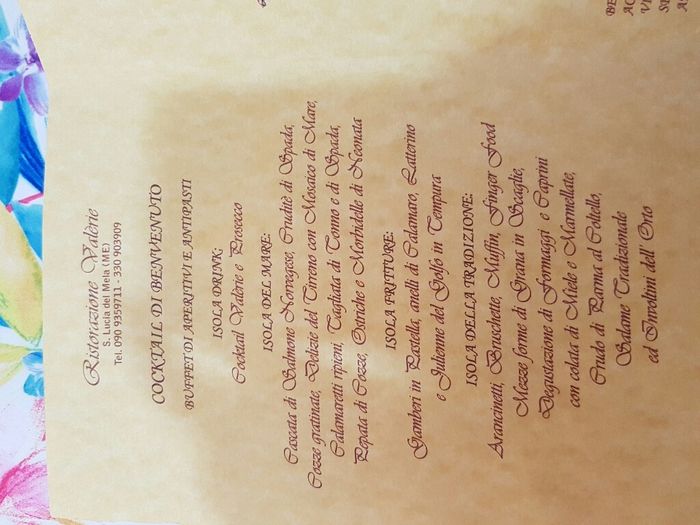 Ristorazione Valérie
S. Lucia del Mela (ME)
Tel. 090 9359711 - 330 903909
COCKTAIL DI BENVENUTO
BUFFET DI APERITIVI E ANTIPASTI
ISOLA DRINK:
Cocktail Valérie e Prosecco
ISOLA DEL MARE:
Cascata di Salmone Norvegese, Crudité di Spada,
Cozze gratinate, Delizie del Tirreno con Mosaico di Mare,
Calamaretti ripieni, Tagliata di Tonno e di Spada,
Pepata di Cozze, Ostriche e Morbidelle di Neonata
ISOLA FRITTURE:
Gamberi in Pastella, anelli di Calamaro, Latterino
e Julienne del Golfo in Tempura
ISOLA DELLA TRADIZIONE:
Arancinetti, Bruschette, Muffin, Finger Food
Mezze forme di Grana in Scaglie,
Degustazione di Formaggi e Caprini
con colata di Miele e Marmellate,
Crudo di Parma al Coltello,
Salame Tradizionale
ed Involtini dell' Orto
BE
AC
VI
SE
A